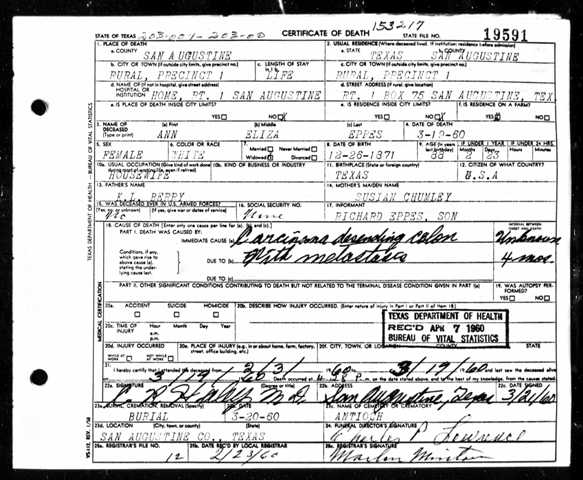 153217
STATE OF TEXAS 203-001-203-00 CERTIFICATE OF DEATH STATE FILE NO. 19591
1. PLACE OF DEATH 2. USUAL RESIDENCE (Where deceased lived. If institution: residence before admission)
a. COUNTY SAN AUGUSTINE a. STATE TEXAS b. COUNTY SAN AUGUSTINE
b. CITY OR TOWN (If outside city limits, give precinct no.) c. LENGTH OF STAY c. CITY OR TOWN (If outside city limits, give precinct no.)
RURAL, PRECINCT 1 LIFE RURAL, PRECINCT 1
d. NAME OF (If not in hospital, give street address) d. STREET ADDRESS (If rural, give location)
HOSPITAL OR INSTITUTION HOME, RT. 1 SAN AUGUSTINE RT. 1 BOX 75 SAN AUGUSTINE, TEX
e. IS PLACE OF DEATH INSIDE CITY LIMITS? e. IS RESIDENCE INSIDE CITY LIMITS? f. IS RESIDENCE ON A FARM?
YES NO YES NO YES NO
3. NAME OF DECEASED (a) First (b) Middle (c) Last 4. DATE OF DEATH
(Type or print) ANN ELIZA EPPES 3-19-60
5. SEX 6. COLOR OR RACE 7. Married Never Married Widowed Divorced 8. DATE OF BIRTH 9. AGE IF UNDER 1 YEAR IF UNDER 24 HRS.
FEMALE WHITE 12-26-1871 88 2 23
10a. USUAL OCCUPATION 10b. KIND OF BUSINESS OR INDUSTRY 11. BIRTHPLACE (State or foreign country) 12. CITIZEN OF WHAT COUNTRY?
HOUSEWIFE TEXAS U.S.A
13. FATHER'S NAME 14. MOTHER'S MAIDEN NAME
SUSIAN CHUMLEY
15. WAS DECEASED EVER IN U.S. ARMED FORCES? 16. SOCIAL SECURITY NO. 17. INFORMANT
(Yes, no, or unknown) (If yes, give war or dates of service)
No None RICHARD EPPES, SON
18. CAUSE OF DEATH [Enter only one cause per line for (a), (b), and (c).] INTERVAL BETWEEN ONSET AND DEATH
PART I. DEATH WAS CAUSED BY:
IMMEDIATE CAUSE (a) Carcinoma desending colon Unknown
Conditions, if any, which gave rise to above cause (a), stating the underlying cause last. DUE TO (b) With metastases 4 mos.
DUE TO (c)
PART II. OTHER SIGNIFICANT CONDITIONS CONTRIBUTING TO DEATH BUT NOT RELATED TO THE TERMINAL DISEASE CONDITION GIVEN IN PART I (a) 19. WAS AUTOPSY PERFORMED?
YES NO
20a. ACCIDENT SUICIDE HOMICIDE 20b. DESCRIBE HOW INJURY OCCURRED. (Enter nature of injury in Part I or Part II of item 18.)
20c. TIME OF INJURY Hour Month Day Year
a.m.
p.m.
TEXAS DEPARTMENT OF HEALTH
REC'D APR 7 1960
BUREAU OF VITAL STATISTICS
20d. INJURY OCCURRED 20e. PLACE OF INJURY (e.g., in or about home, farm, factory, street, office building, etc.) 20f. CITY, TOWN, OR LOCATION
WHILE AT WORK NOT WHILE AT WORK
21. I hereby certify that I attended the deceased from 2/3/ 60 3/19/60
3/19/60 Death occurred at
22a. SIGNATURE 22b. ADDRESS 22c. DATE SIGNED
M.D. San Augustine, Texas 3/21/60
23a. BURIAL, CREMATION, REMOVAL (Specify) 23b. DATE 23c. NAME OF CEMETERY OR CREMATORY
BURIAL 3-20-60 ANTIOCH
23d. LOCATION (City, town, or county) (State) 24. FUNERAL DIRECTOR'S SIGNATURE
SAN AUGUSTINE CO., TEXAS
25a. REGISTRAR'S FILE NO. 25b. DATE REC'D BY LOCAL REGISTRAR 25c. REGISTRAR'S SIGNATURE
12 2/23/60
TEXAS DEPARTMENT OF HEALTH - BUREAU OF VITAL STATISTICS
MEDICAL CERTIFICATION